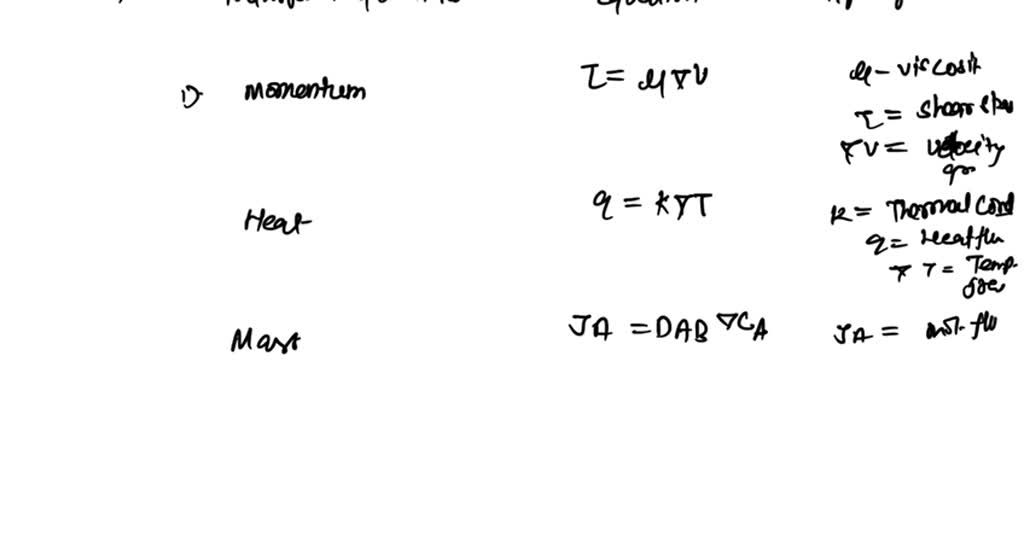 1) Momentum τ = μ∇V μ - viscosit
τ = shear
∇V = velocity
Heat q = k∇T k = Thermal Cond
q = Heat flu
∇T = Temp.
Mass JA = DAB ∇CA JA = mol. flu